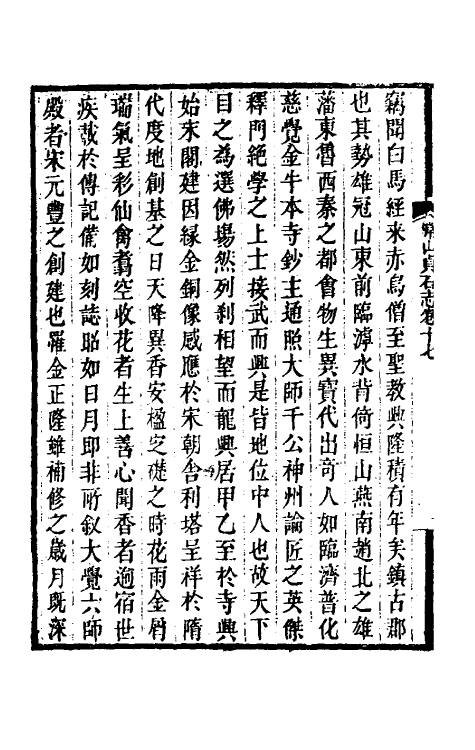 竊聞白馬經来赤烏僧至聖教興隆積有年矣鎮古郡
也其勢雄冠山東前臨滹水背倚恒山燕南趙北之雄
藩東魯西秦之都會物生異寶代出奇人如臨濟普化
慈覺金牛本寺鈔主通照大師千公神州論匠之英傑
釋門絶學之上士接武而興是皆地位中人也故天下
目之為選佛場然列刹相望而龍興居甲乙至於寺興
始末閣建因緣金銅像感應於宋朝舎利塔呈祥於隋
代度地創基之日天降異香安楹定礎之時花雨金屑
瑞氣呈彩仙禽翥空收花者生上善心聞香者逈宿世
疾載於傳記備如刻誌昭如日月即非所叙大覺六師
殿者宋元豐之創建也罹金正隆雖補修之歳月既深
山貞石志卷十七